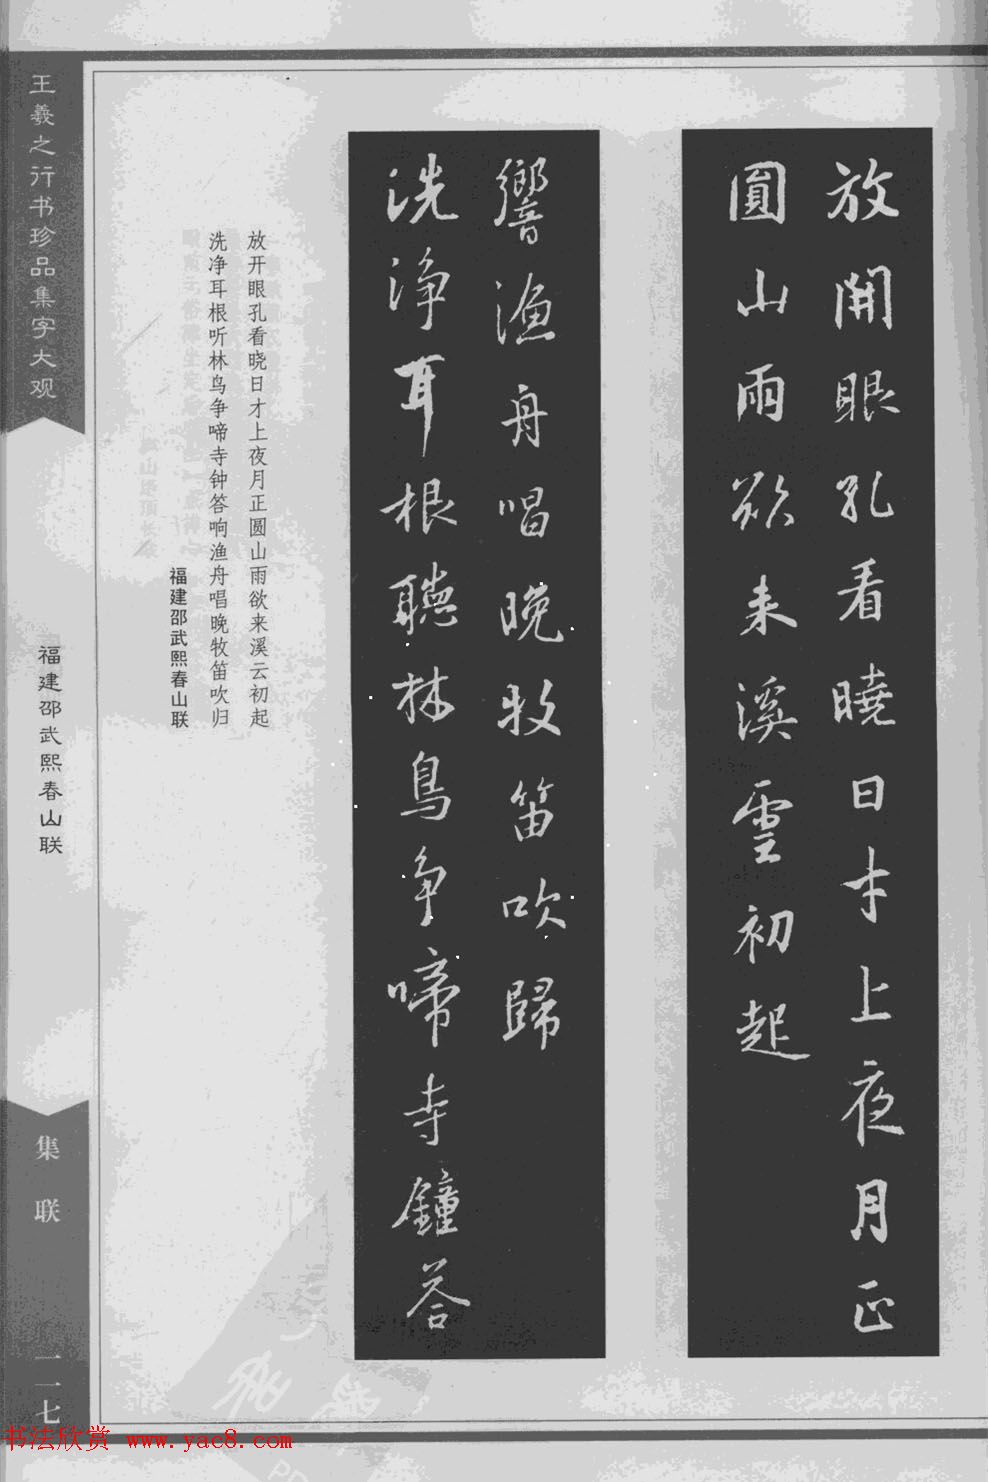 放開眼孔看曉日才上夜月正
圓山雨欲来溪雲初起
洗淨耳根聽林鳥争啼寺鐘答
響漁舟唱晚牧笛吹歸
放开眼孔看晓日才上夜月正圆山雨欲来溪云初起
洗净耳根听林鸟争啼寺钟答响渔舟唱晚牧笛吹归
福建邵武熙春山联
王羲之行书珍品集字大观
福建邵武熙春山联
集联
一二七
书法欣赏 www.yac8.com